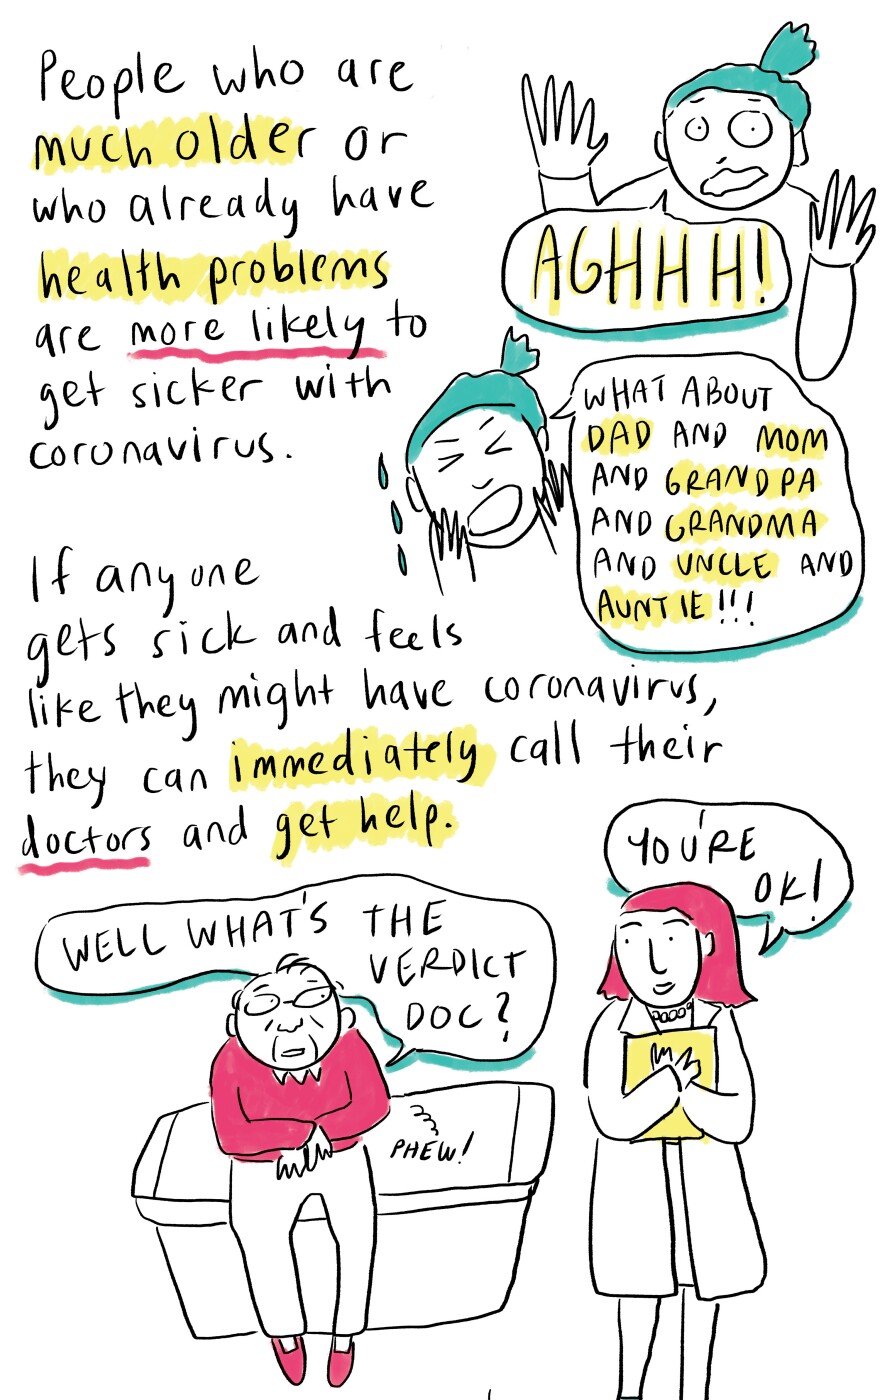 People who are
much older or
who already have
health problems
are more likely to
get sicker with
coronavirus.
AGHHH!
WHAT ABOUT
DAD AND MOM
AND GRANDPA
AND GRANDMA
AND UNCLE AND
AUNTIE!!!
If anyone
gets sick and feels
like they might have coronavirus,
they can immediately call their
doctors and get help.
YOU'RE
OK!
WELL WHAT'S THE
VERDICT
DOC?
PHEW!